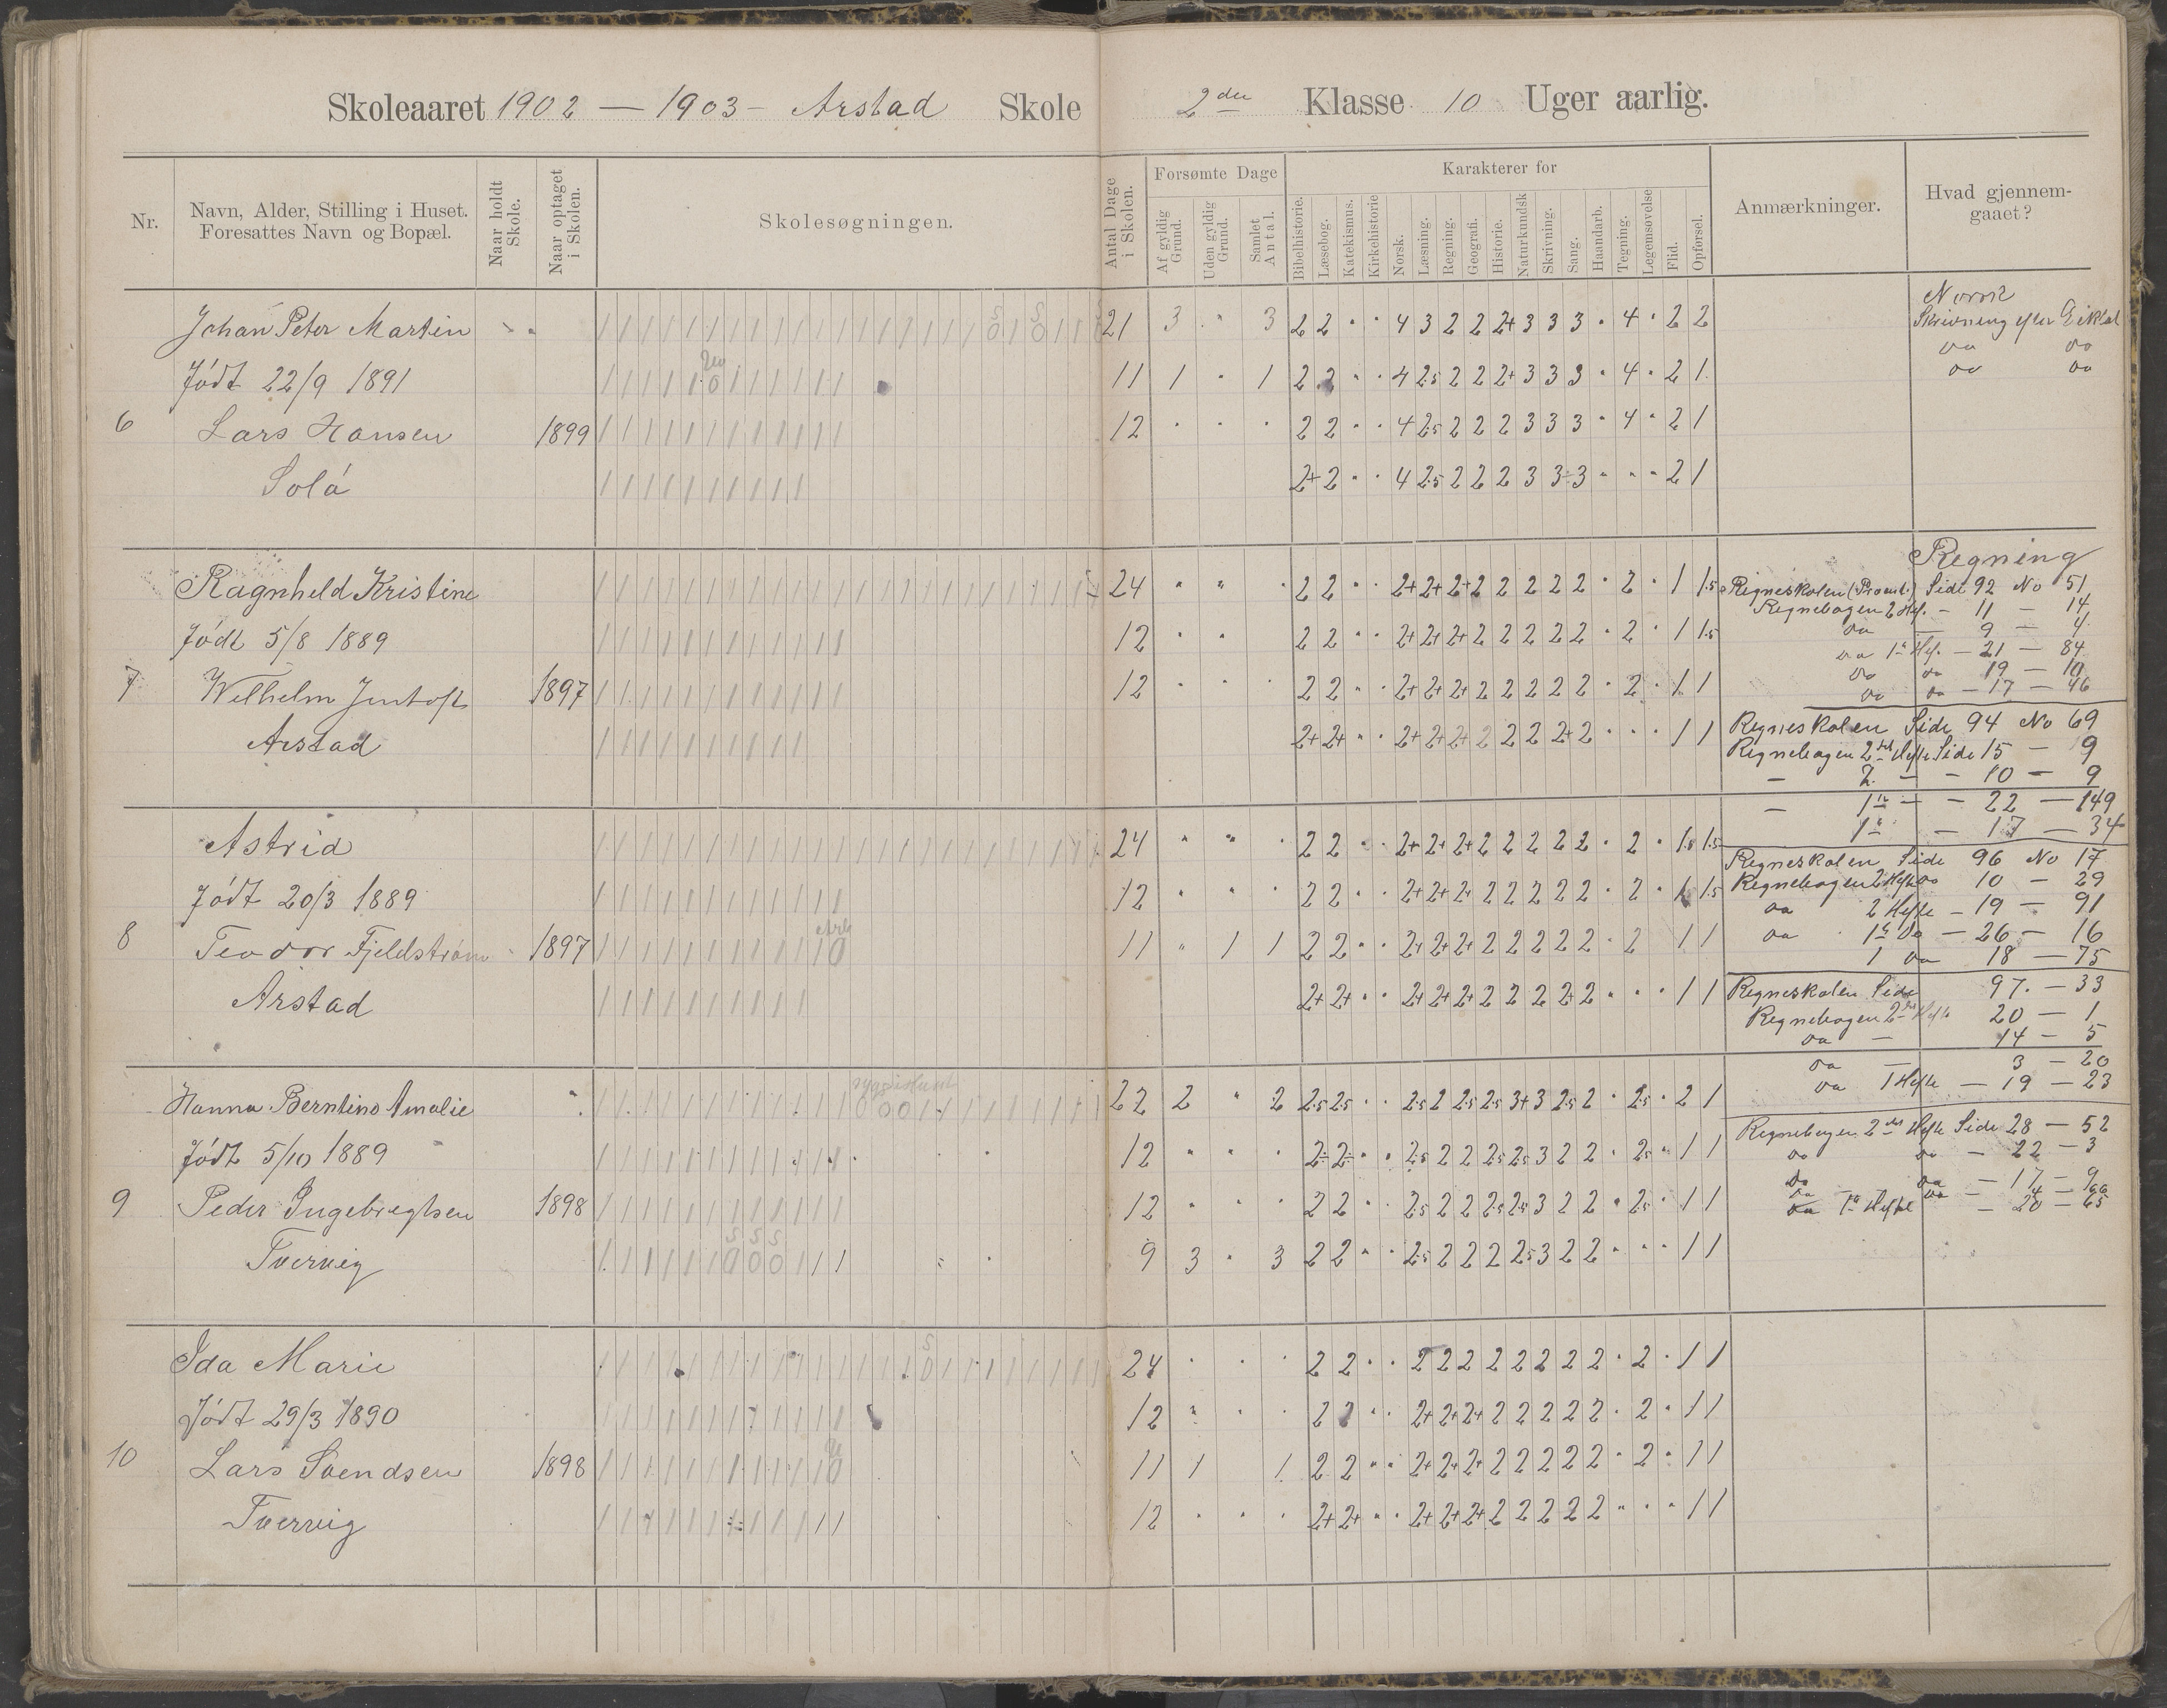 Skoleaaret 1902 — 1903 - Arstad Skole 2den Klasse 10 Uger aarlig.
Nr.
Navn, Alder, Stilling i Huset.
Foresattes Navn og Bopæl.
Naar holdt
Skole.
Naar optaget
i Skolen.
Skolesøgningen.
Antal Dage
i Skolen.
Forsømte Dage
Af gyldig
Grund.
Uden gyldig
Grund.
Samlet
Antal.
Karakterer for
Bibelhistorie.
Læsebog.
Katekismus.
Kirkehistorie
Norsk.
Læsning.
Regning.
Geografi.
Historie.
Naturkundsk
Skrivning.
Sang.
Haandarb.
Tegning.
Legemsøvelse
Flid.
Opførsel.
Anmærkninger.
Hvad gjennem-
gaaet?
Johan Peter Martin 21 3 " 3 2 2 " " 4 3 2 2 2+ 3 3 3 " 4 " 2 2
Født 22/9 1891 11 1 " 1 2 2 " " 4 2.5 2 2 2+ 3 3 3 " 4 " 2 1
6 Lars Hansen 1899 12 " " " 2 2 " " 4 2.5 2 2 2 3 3 3 " 4 " 2 1
Solå 2+ 2 " " 4 2.5 2 2 2 3 3 3 " " " 2 1
Norsk
Skrivning efter
Ragnhild Kristine 24 " " " 2 2 " " 2+ 2+ 2+ 2 2 2 2 2 " 2 " 1 1.5
Født 5/8 1889 12 " " 2 2 " " 2+ 2+ 2+ 2 2 2 2 2 " 2 " 1 1.5
7 Wilhelm Jentoft 1897 12 " " " 2 2 " " 2+ 2+ 2+ 2 2 2 2 2 " 2 " 1 1
Arstad 2+ 2+ " " 2+ 2+ 2+ 2 2 2 2+ 2 " " " 1 1
Regning
Regneskolen (Procent.) Side 92 No 51
Regnebogen 2 Hef. - 11 - 14
da - 9 - 4
da 1ste Hef. - 21 - 84
da da 19 - 10
da da - 17 - 46
Regneskolen Side 94 No 69
Regnebogen 2det Hefte Side 15 - 9
- 2 - - 10 - 9
- 1ste - - 22 - 149
1ste - 17 - 34
Astrid 24 " " " 2 2 " " 2+ 2+ 2+ 2 2 2 2 2 " 2 " 1.5 1.5
Født 20/3 1889 12 " " " 2 2 " " 2+ 2+ 2+ 2 2 2 2 2 " 2 " 1 1.5
8 Teodor Fjeldstrøm 1897 11 " 1 1 2 2 " " 2+ 2+ 2+ 2 2 2 2 2 " 2 1 1
Arstad 2+ 2+ " " 2+ 2+ 2+ 2 2 2 2+ 2 " " " 1 1
Regneskolen Side 96 No 17
Regnebogen 2 Hefte 10 - 29
da 2 Hefte - 19 - 91
da 1ste da - 26 - 16
1 da 18 - 75
Regneskolen Side 97. - 33
Regnebogen 2det Hefte 20 - 1
da - 14 - 5
da - 3 - 20
da 1 Hefte - 19 - 23
Hanna Berntine Amalie 22 2 " 2 2.5 2.5 " " 2.5 2 2.5 2.5 3+ 3 2.5 2 " 2.5 " 2 1
Født 5/10 1889 12 " " " 2÷ 2÷ " " 2.5 2 2 2.5 2.5 3 2 2 " 2.5 " 1 1
9 Peder Ingebregtsen 1898 12 " " " 2 2 " " 2.5 2 2 2.5 2.5 3 2 2 " 2.5 " 1 1
Tvervig 9 3 " 3 2 2 " " 2.5 2 2 2 2.5 3 2 2 " " " 1 1
Regnebogen 2det Hefte Side 28 - 52
da da - 22 - 3
da da - 17 - 9
da 1ste Hefte - 20 - 65
Ida Marie 24 " " " 2 2 " " 2 2 2 2 2 2 2 2 " 2 " 1 1
Født 29/3 1890 12 " " " 2 2 " " 2+ 2+ 2+ 2 2 2 2 2 " 2 " 1 1
10 Lars Svendsen 1898 11 1 1 2 2 " " 2+ 2+ 2+ 2 2 2 2 2 " 2 " 1 1
Tverrvig 12 " " " 2+ 2+ " " 2+ 2+ 2+ 2 2 2 2 2 " " " 1 1